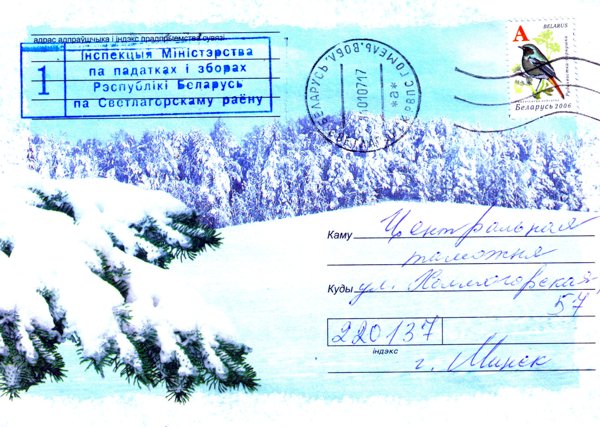 адрас адпраўшчыка і індэкс прадпрыемства сувязі
1
Інспекцыя Міністэрства
па падатках і зборах
Рэспублікі Беларусь
па Светлагорскаму раёну
БЕЛАРУСЬ. ГОМЕЛЬ. ВОБЛ.
010717
*а*
A
BELARUS
Беларусь 2006
Каму Центральная
таможня
Куды ул.
57
220137
індэкс
г. Минск